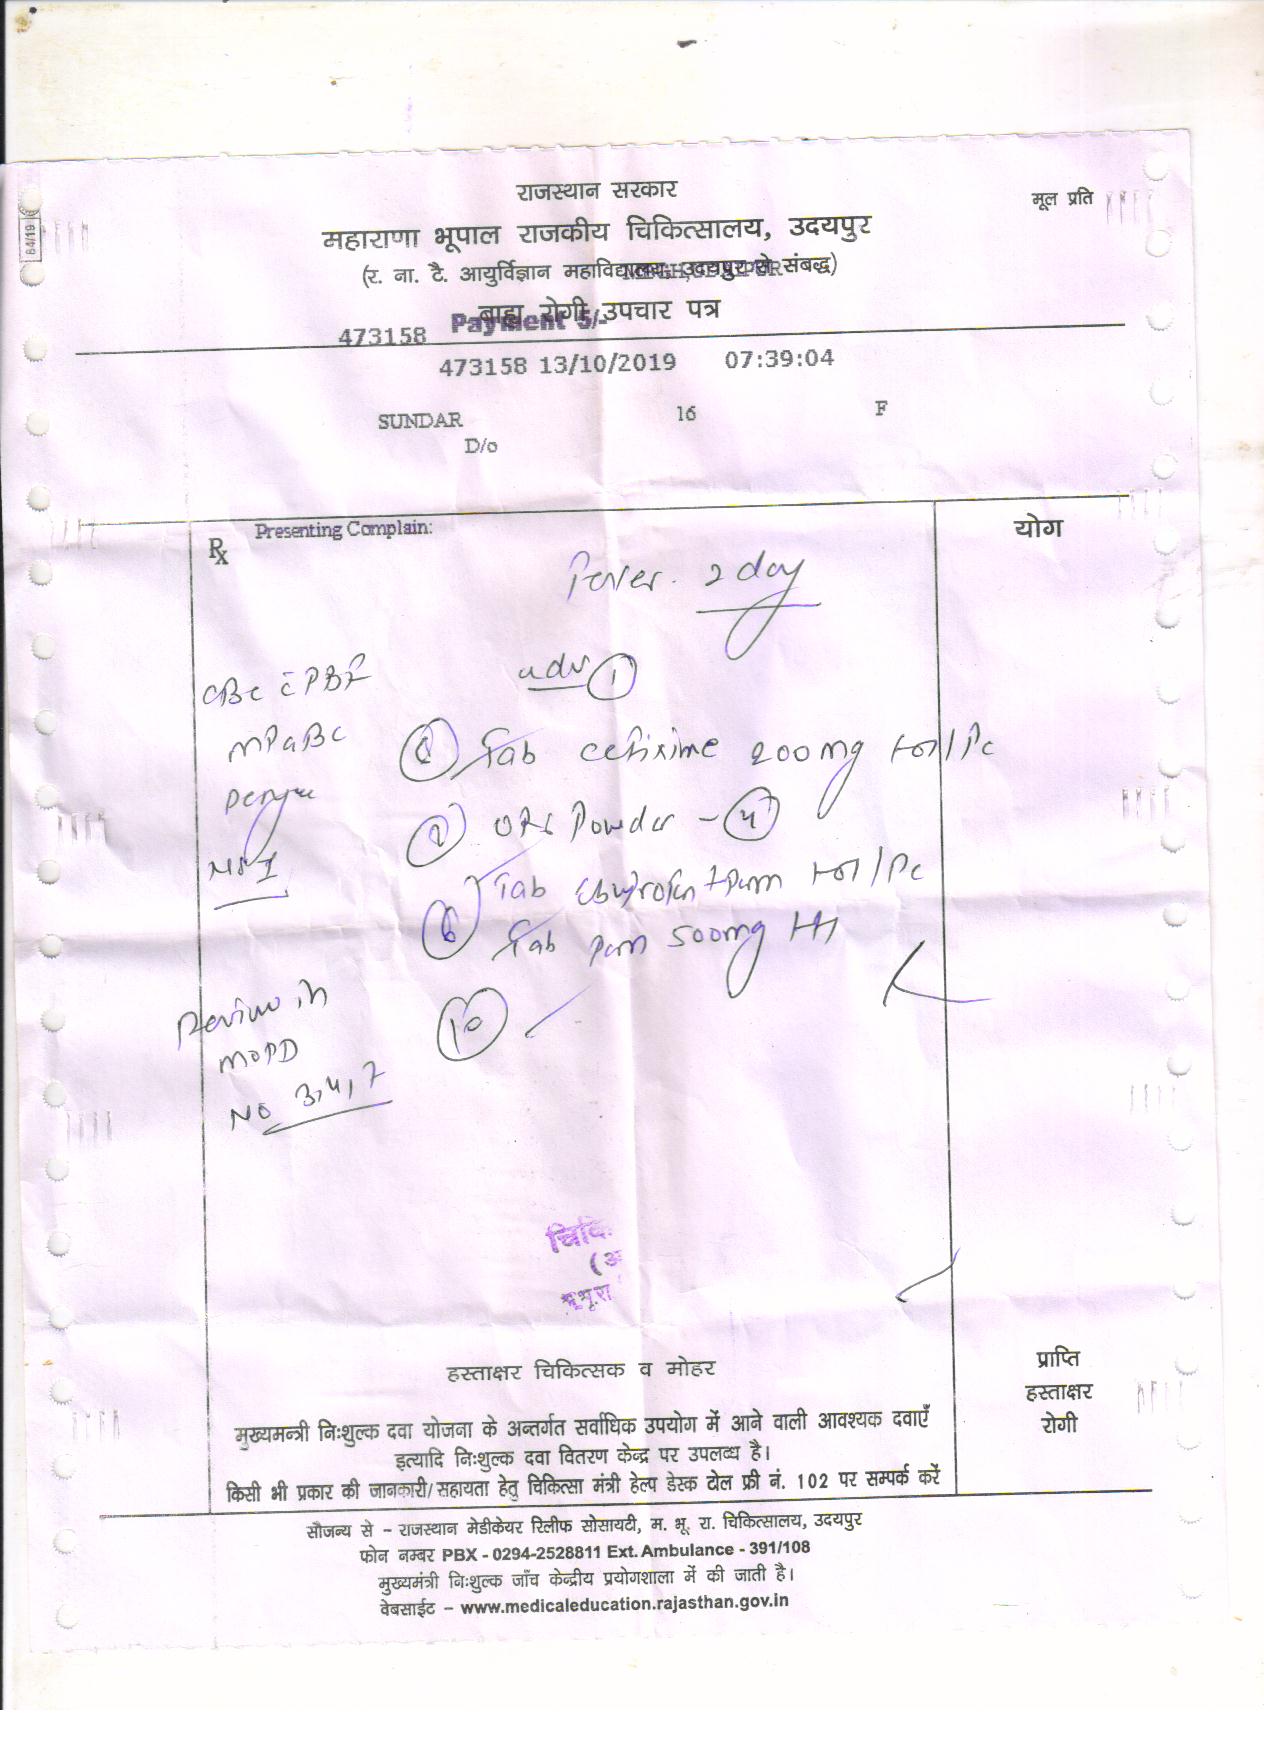 84/19
राजस्थान सरकार
मूल प्रति
महाराणा भूपाल राजकीय चिकित्सालय, उदयपुर
(र. ना. टै. आयुर्विज्ञान महाविद्यालय, उदयपुर से संबद्ध)
बाह्य रोगी उपचार पत्र
473158 Payment 5/-
473158 13/10/2019 07:39:04
SUNDAR 16 F
D/o
Rx Presenting Complain:
योग
Fever. 2 day
CBC c̄ PBF
adv 1
MPQBC
6 Tab cefixime 200mg
Dengue
ORS Powder - 4
NS1
Tab
6 Tab pcm 500mg
Review in
10
MOPD
No 3,4,7
चिकि
(अ
भू.रा
हस्ताक्षर चिकित्सक व मोहर
प्राप्ति
हस्ताक्षर
रोगी
मुख्यमन्त्री निःशुल्क दवा योजना के अन्तर्गत सर्वाधिक उपयोग में आने वाली आवश्यक दवाएँ
इत्यादि निःशुल्क दवा वितरण केन्द्र पर उपलब्ध है।
किसी भी प्रकार की जानकारी/सहायता हेतु चिकित्सा मंत्री हेल्प डेस्क टोल फ्री नं. 102 पर सम्पर्क करें
सौजन्य से - राजस्थान मेडीकेयर रिलीफ सोसायटी, म. भू. रा. चिकित्सालय, उदयपुर
फोन नम्बर PBX - 0294-2528811 Ext. Ambulance - 391/108
मुख्यमंत्री निःशुल्क जाँच केन्द्रीय प्रयोगशाला में की जाती है।
वेबसाईट - www.medicaleducation.rajasthan.gov.in